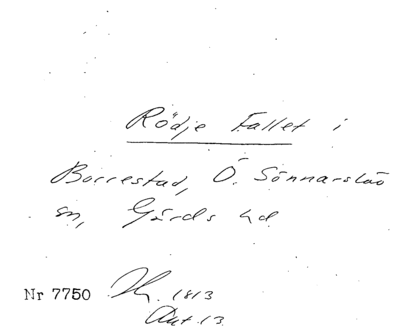 Rödje Fallet i
Borrestad, Ö. Sönnarslöv
sn, Gärds hd
Nr 7750 1813
Akt 13.